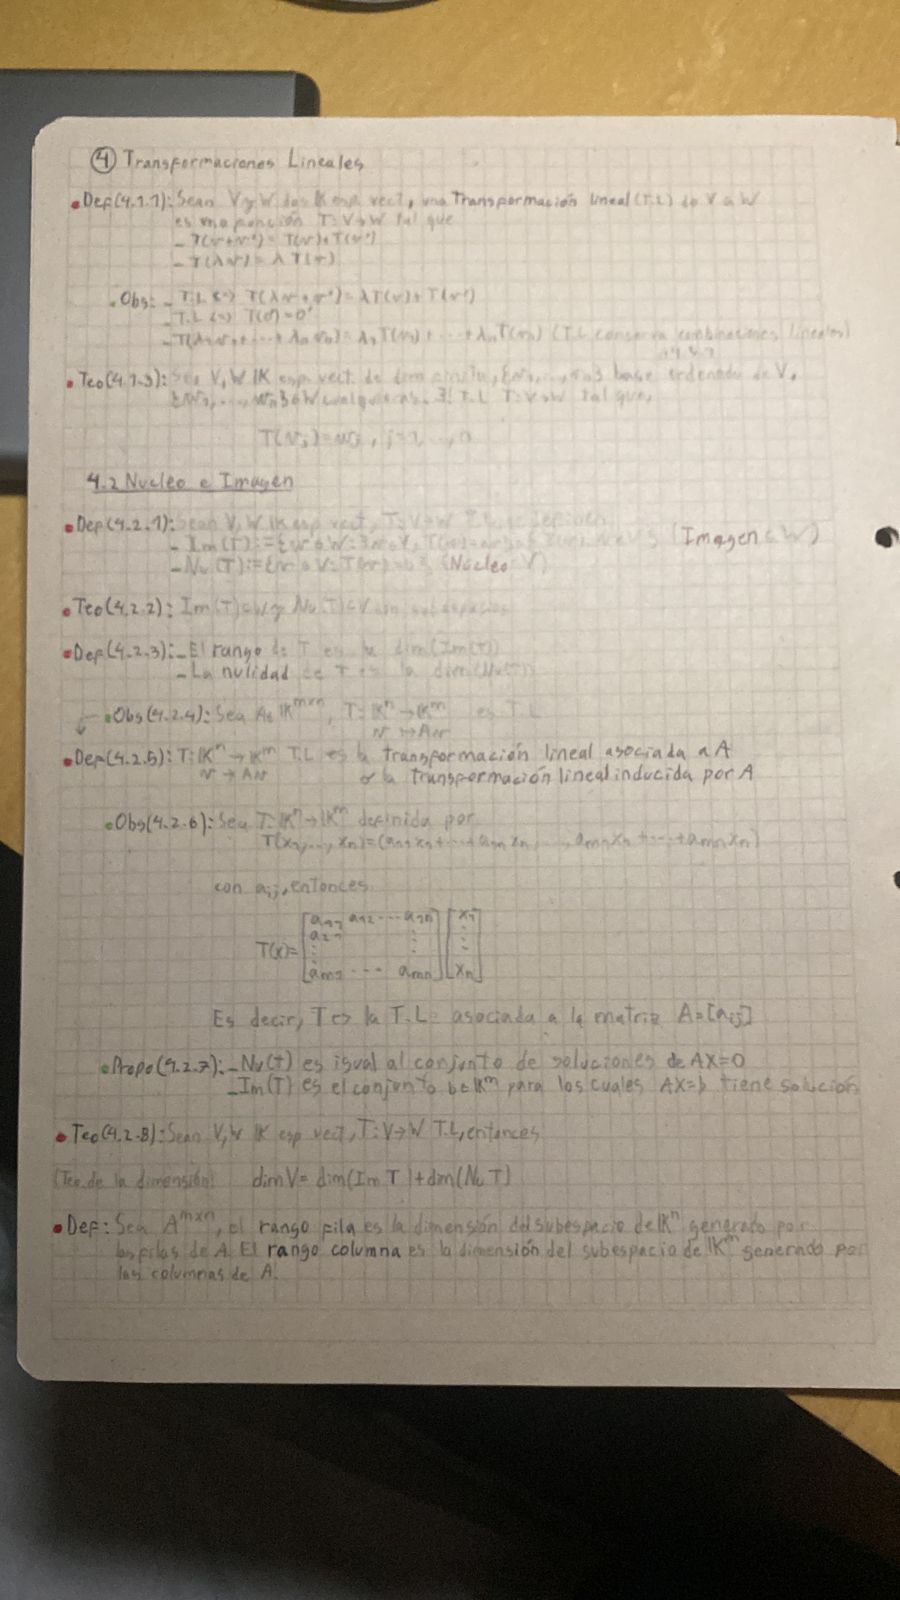 ④ Transformaciones Lineales
• Def(4.1.1): Sean V y W dos IK esp vect, una Transformación lineal (T.L) de V a W
es una función T: V→W tal que
- T(v+v')= T(v)+T(v')
- T(λv)= λ T(v)
• Obs: - T.L <=> T(λv+v')=λT(v)+T(v')
- T.L <=> T(0)=0'
- T(λ₁v₁+···+λₙvₙ)=λ₁T(v₁)+···+λₙT(vₙ) (T.L conserva combinaciones lineales)
• Teo(4.1.3): Sea V, W IK esp vect. de dim base ordenada de V,
cualquiera ∃! T.L T:V→W tal que,
T(vⱼ)=wⱼ, j=1,...,n
4.2 Nucleo e Imagen
• Def(4.2.1): Sean V, W IK esp vect, T:V→W T.L, se
- Im(T):= (Imagen ⊂ W)
- Nu(T):={v∈V: T(v)=0} (Núcleo V)
• Teo(4.2.2): Im(T)⊂W y Nu(T)⊂V son subespacios
• Def(4.2.3): - El rango de T es la dim(Im(T))
- La nulidad de T es la dim(Nu(T))
• Obs(4.2.4): Sea A∈IKᵐˣⁿ, T: IKⁿ→IKᵐ es T.L
v ↦ Av
• Def(4.2.5): T: IKⁿ→IKᵐ T.L es la transformación lineal asociada a A
v → Av o la transformación lineal inducida por A
• Obs(4.2.6): Sea T: IKⁿ→IKᵐ definida por
T(x₁,...,xₙ)=(a₁₁x₁+···+a₁ₙxₙ, ..., aₘ₁x₁+···+aₘₙxₙ)
con aᵢⱼ, entonces
[a₁₁ a₁₂ ··· a₁ₙ] [x₁]
[a₂₁ ⋮] [⋮]
T(x)= [⋮ ⋮] [⋮]
[aₘ₁ ··· aₘₙ] [xₙ]
Es decir, T es la T.L asociada a la matriz A=[aᵢⱼ]
• Propo(4.2.7): - Nu(T) es igual al conjunto de soluciones de AX=0
- Im(T) es el conjunto b∈IKᵐ para los cuales AX=b tiene solución
• Teo(4.2.8): Sean V, W IK esp vect, T: V→W T.L, entonces
(Teo de la dimensión) dimV= dim(Im T)+dim(Nu T)
• Def: Sea Aᵐˣⁿ, el rango fila es la dimensión del subespacio de IKⁿ generado por
las filas de A. El rango columna es la dimensión del subespacio de IKᵐ generado por
las columnas de A.